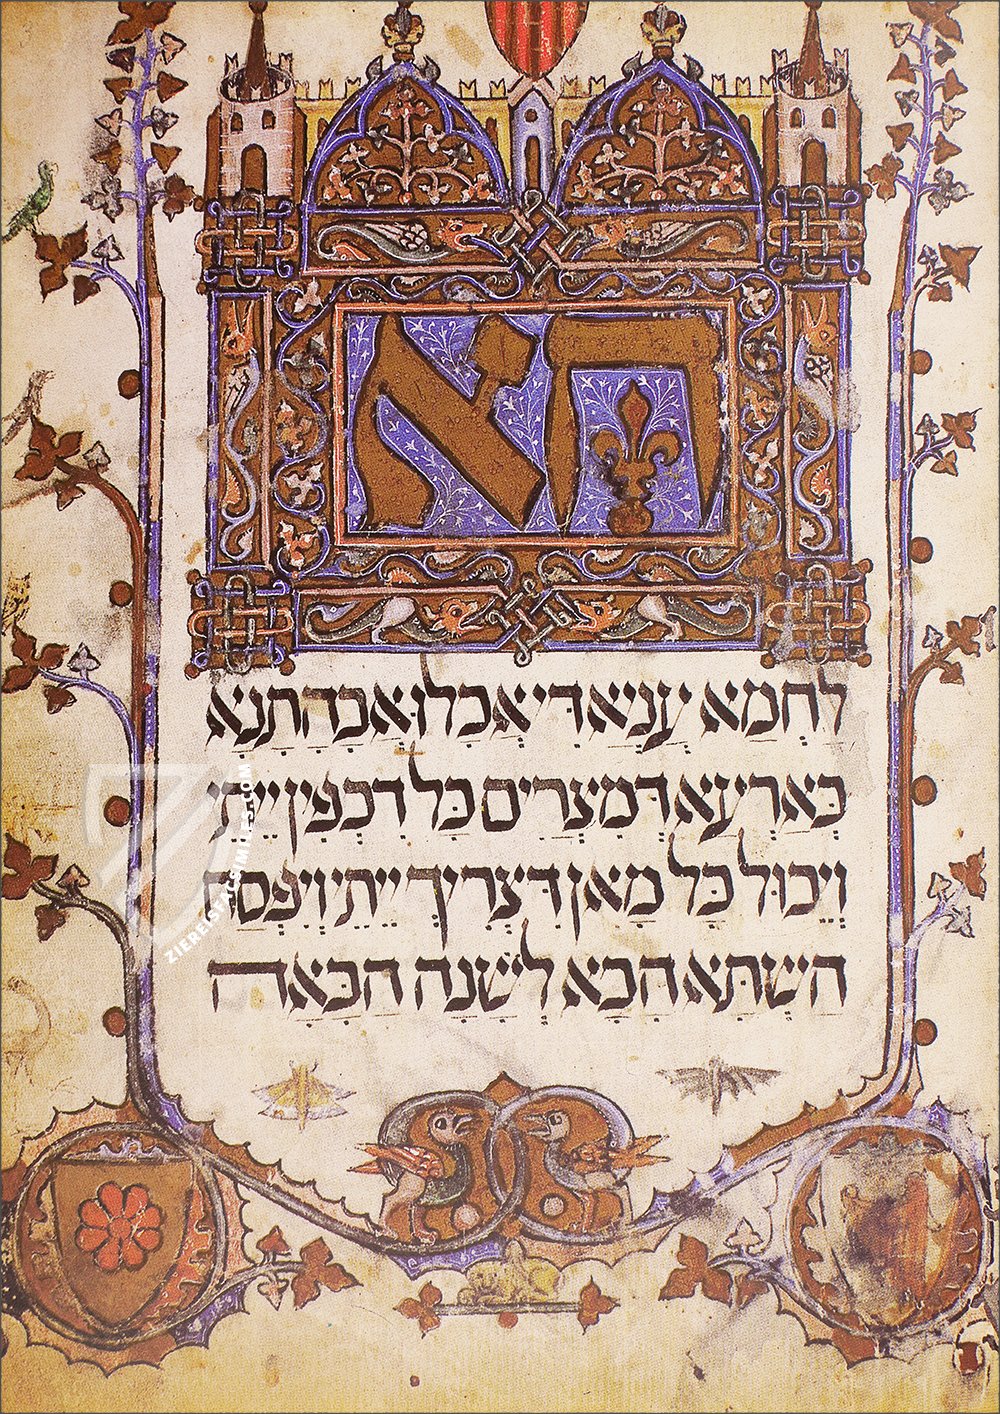 הא
לַחְמָא עַנְיָא דִּי אֲכָלוּ אֲבָהָתַנָא
בְּאַרְעָא דְּמִצְרַיִם כָּל דִכְפִין יֵיתֵי
וְיֵכוּל כָּל מַאן דִּצְרִיךְ יֵיתֵי וְיִפְסַח
הַשַׁתָּא הָכָא לְשָׁנָה הַבָּאָה
ZIERELSFACSIMILES.COM